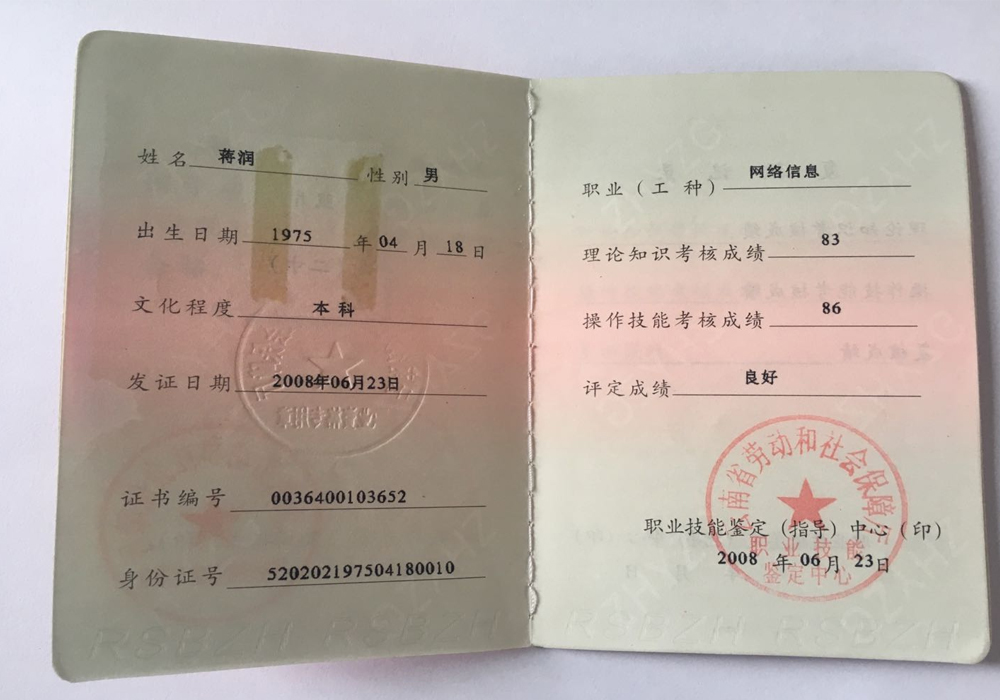 姓名 蒋润 性别 男
出生日期 1975 年 04 月 18 日
文化程度 本科
发证日期 2008年06月23日
证书编号 0036400103652
身份证号 520202197504180010
RSBZH RSBZH
职业(工种) 网络信息
理论知识考核成绩 83
操作技能考核成绩 86
评定成绩 良好
云南省劳动和社会保障厅
职业技能鉴定(指导)中心(印)
职业技能
鉴定中心
2008 年 06 月 23 日
RSBZH RSBZH